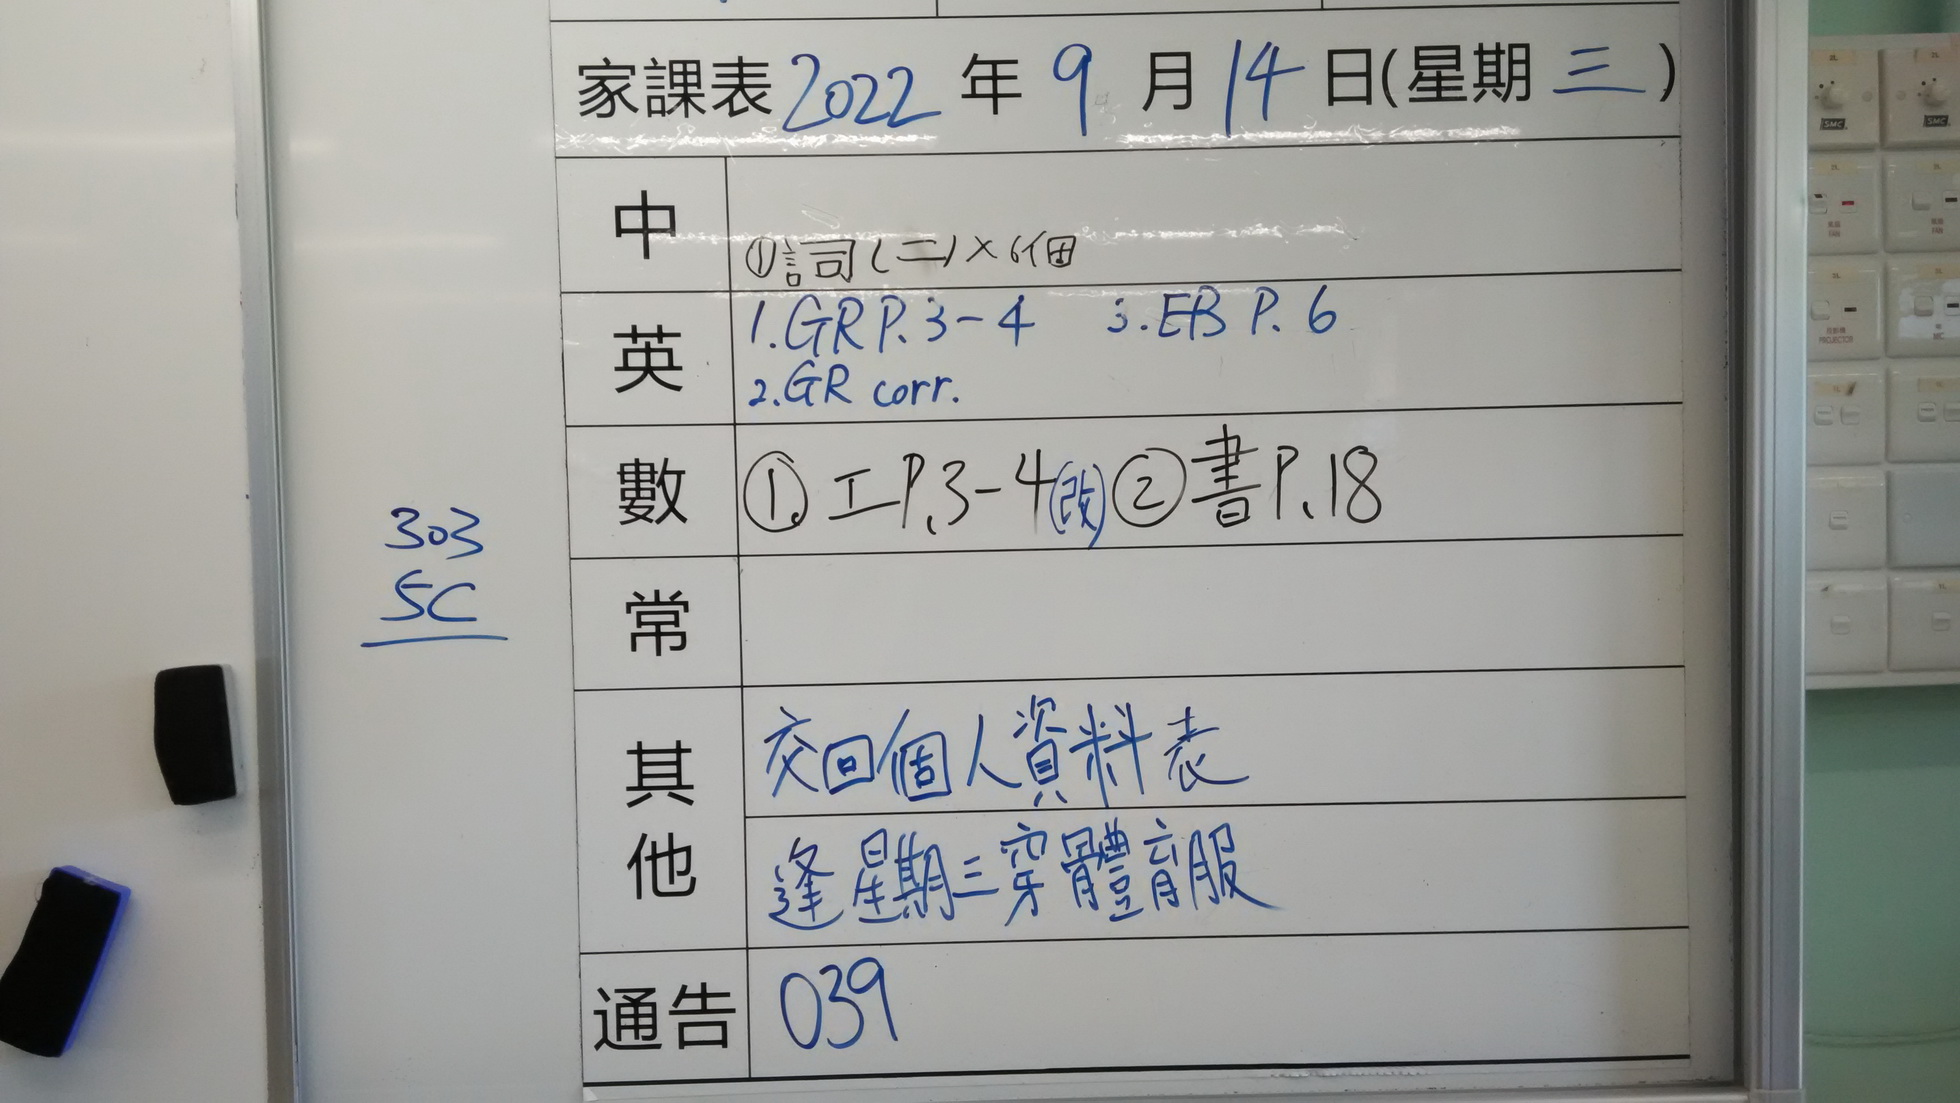 家課表 2022 年 9 月 14 日(星期 三)
中 ①詞(二)×6個
英 1.GR P.3-4 3.EB P.6
2.GR corr.
數 ①.工P.3-4(改)②書P.18
常
其他 交回個人資料表
逢星期三穿體育服
通告 039
303
5C
SMC
SMC
PROJECTOR